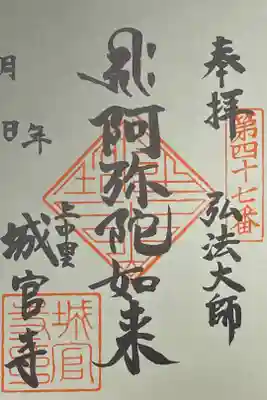 第四十七番
奉拝
弘法大師
阿弥陀如来
上中里
城官寺
年
月
日
城官寺印